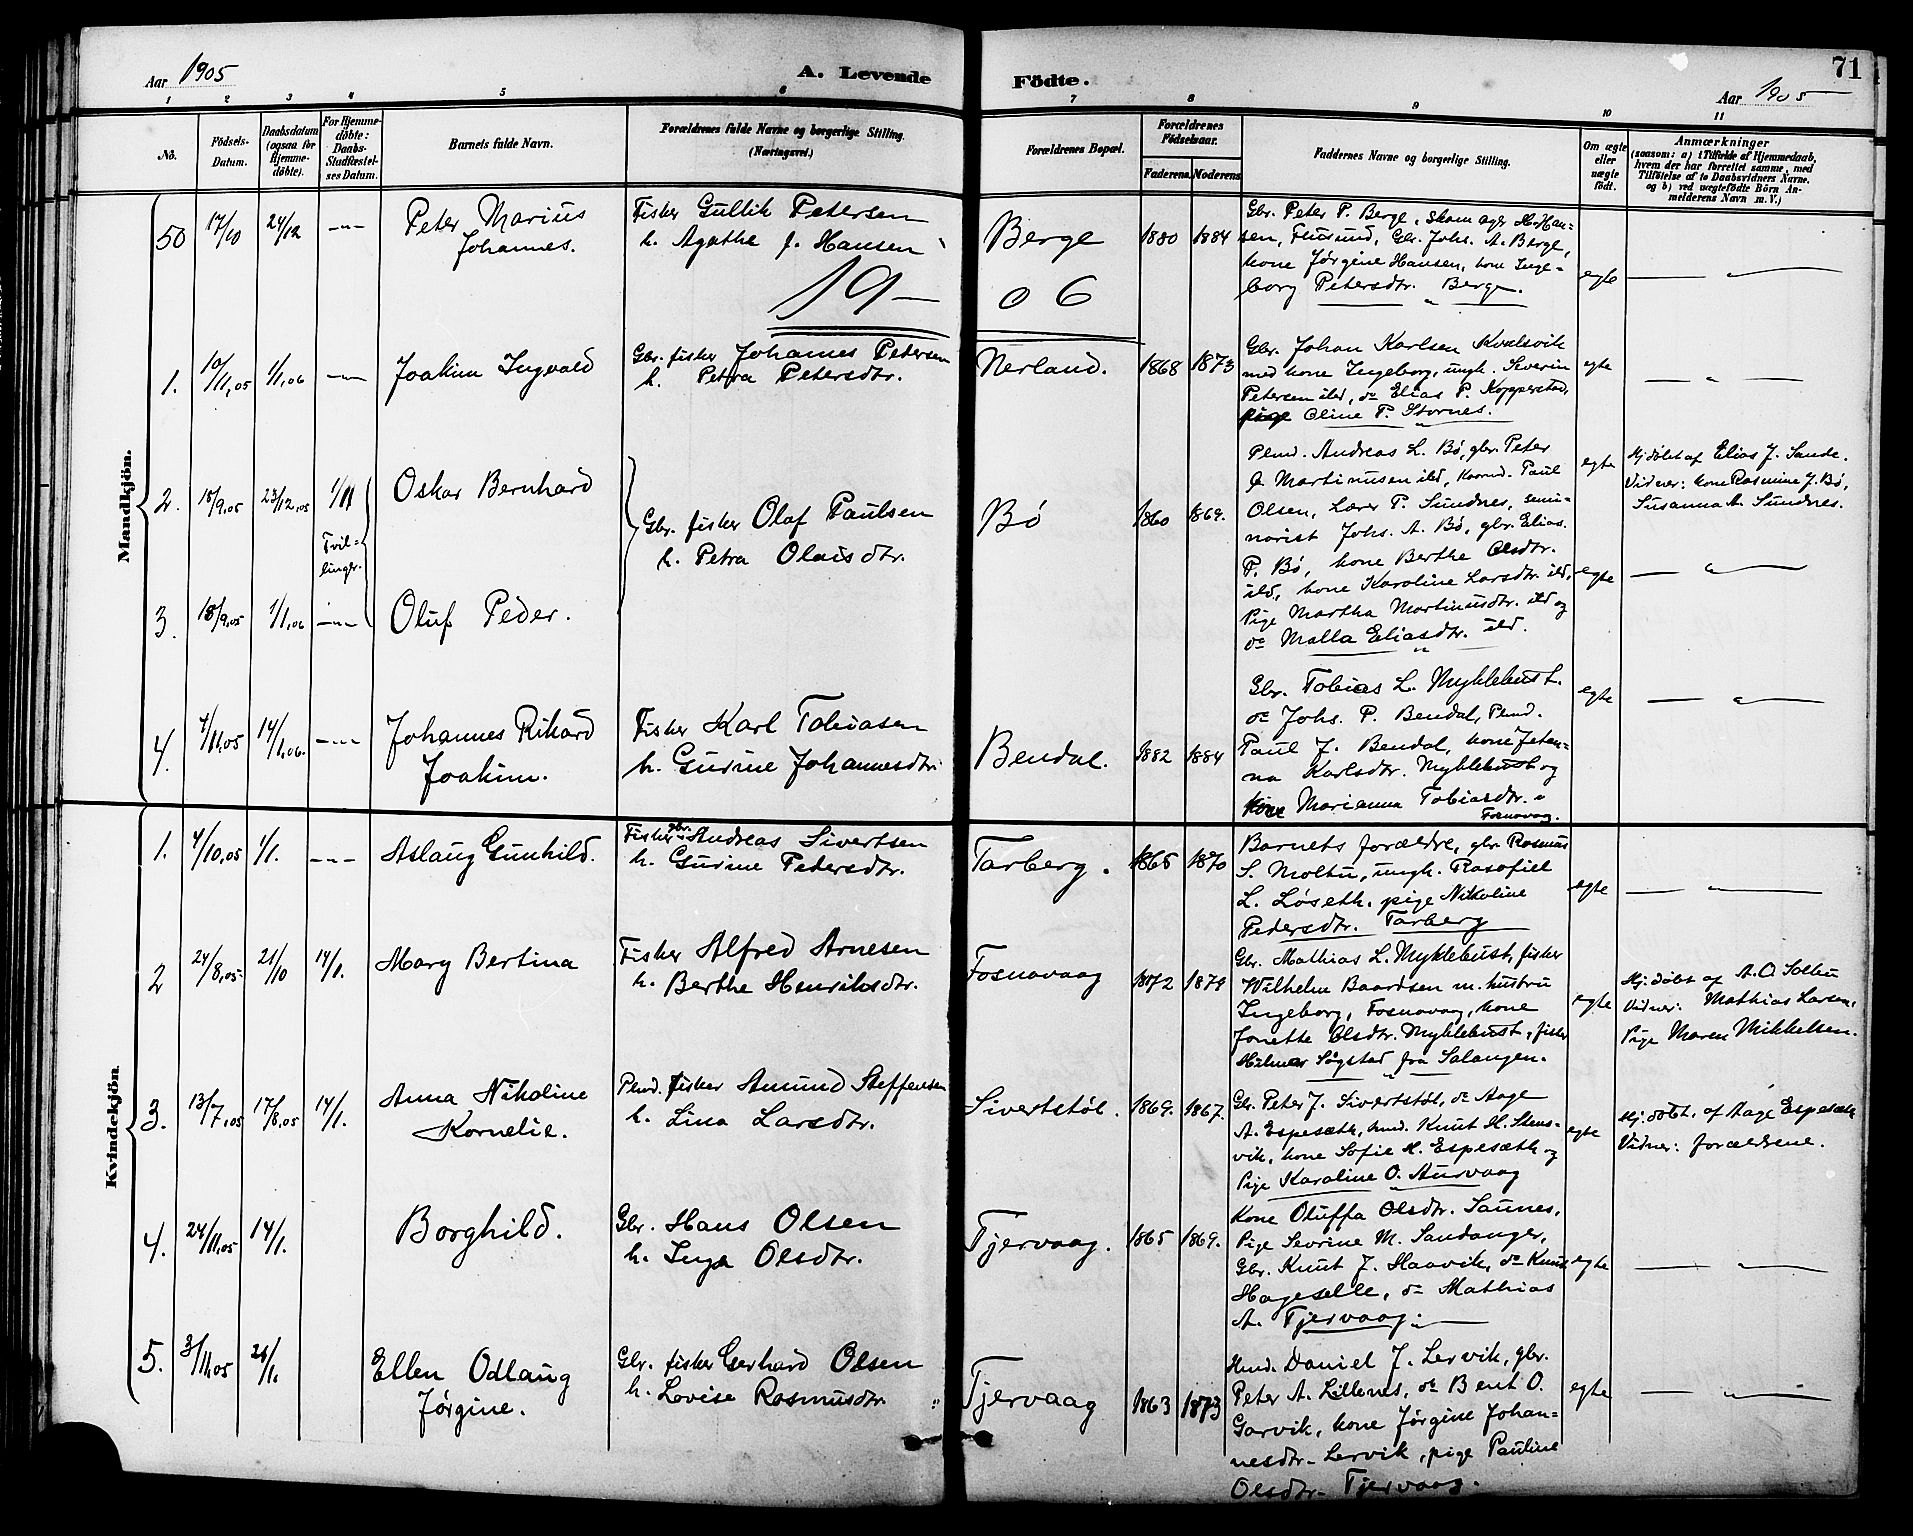 Aar 1905
A. Levende
Födte.
Aar 1905
71
1 2 3 4 5 6 7 8 9 10 11
No.
Födsels-
Datum.
Daabsdatum
(ogsaa for
Hjemme-
döbte).
For Hjemme-
döbte:
Daabs-
Stadfæstel-
ses Datum.
Barnets fulde Navn.
Forældrenes fulde Navne og borgerlige Stilling.
(Næringsvei.)
Forældrenes Bopæl.
Forældrenes
Födselsaar.
Faderens. Moderens.
Faddernes Navne og borgerlige Stilling.
Om ægte
eller
uægte
födt.
Anmærkninger
(saasom: a) i Tilfælde af Hjemmedaab,
hvem der har forrettet samme, med
Tilföielse af to Daabsvidners Navne.
og b) ved uægtefödte Börn An-
melderens Navn m. V.)
Mandkjön.
50 17/10 24/12 -"-
Peter Marius
Johannes.
Fisker Gullik Petersen
h. Agathe f. Hansen
Berge
1880 1884
Gbr. Peter P. Berge, skomager H. Han-
sen, Flusund, Gbr. Johs. A. Berge,
kone Jørgine Hansen, kone Inge-
borg Petersdtr. Berge.
egte
— " —
19—
06
1. 10/11,05 1/1,06 -"-
Joakim Ingvald
Gbr. fisker Johannes Petersen
h. Petra Petersdtr.
Nerland.
1868 1873
Gbr. Johan Karlsen Kvalsvik
med kone Ingeborg, ungk. Severin
Petersen ild, do Elias P. Kopperstad,
pige Oline P. Stornes.
egte
— " —
2. 18/9,05 23/12,05 1/11
Oskar Bernhard
Tvil-
linger.
Gbr. fisker Olaf Paulsen
h. Petra Olaisdtr.
Bø
1860 1869.
Plmd. Andreas L. Bø, gbr. Peter
J. Martinusen ild, Kaarmd. Paul
Olsen, Lærer P. Sundnes, semi-
narist Johs. A. Bø, gbr. Elias
P. Bø, kone Berthe Olsdtr.
ild, kone Karoline Larsdtr ild,
Pige Martha Martinusdtr. ild og
do Malla Eliasdtr. ild.
egte
Hj.døbt af Elias J. Sande.
Vidner: kone Rasmine J. Bø,
Susanna A. Sundnes.
3. 18/9,05 1/1,06 -"-
Oluf Peder.
egte
— " —
4. 4/11,05 14/1,06. -"-
Johannes Rikard
Joakim.
Fisker Karl Tobiasen
h. Gurine Johannesdtr.
Bendal.
1882 1884
Gbr. Tobias L. Myklebust.
do Johs. P. Bendal, Plmd.
Paul J. Bendal, kone Jetan-
na Karlsdtr. Myklebust og
kone Marianna Tobiasdtr.
Fosnavaag.
egte
— " —
Kvindekjön.
1. 4/10,05 1/1. ---
Aslaug Gunhild.
Fisker gbr. Andreas Sivertsen
h. Gurine Pedersdtr.
Tarberg.
1865 1870
Barnets forældre, gbr. Rasmus
S. Moltu, ungk. Rasofiel
L. Løseth, pige Nikoline
Pedersdtr. Tarberg
egte
— " —
2 24/8,05 21/10 14/1.
Mary Bertina
Fisker Alfred Arnesen
h. Berthe Henriksdtr.
Fosnavaag
1872 1879
Gbr. Mathias L. Myklebust, fisker
Wilhelm Baardsen m. hustru
Ingeborg, Fosnavaag, kone
Jonette Olsdtr. Myklebust, fisker
Hilmar Søgstad fra Salangen.
egte
Hj. døbt af A. O. Solbu
Vidner: Mathias Larsen,
Pige Maren Mikkelsen.
3. 13/7,05 17/8,05 14/1.
Anna Nikoline
Kornelie.
Plmd. fisker Amund Steffensen
h. Lina Larsdtr.
Sivertstøl.
1869. 1867.
Gbr. Peter J. Sivertstøl, do Aage
A. Espesæth, hmd. Knut H. Stens-
vik, kone Sofie H. Espesæth og
Pige Karoline O. Aurvaag
egte
Hj. døbt. af Aage Espesæth
Vidner: forældrene.
4. 24/11,05 14/1.
Borghild.
Gbr. Hans Olsen
h. Inga Olsdtr.
Tjervaag.
1865 1869.
Kone Oluffa Olsdtr. Saunes,
Pige Sevrine M. Sandanger,
Gbr. Knut J. Haavik, do Knut
Hageselle, do Mathias
A. Tjervaag.
egte
— " —
5. 3/11,05 26/1.
Ellen Odlaug
Jørgine.
Gbr. fisker Gerhard Olsen
h. Lovise Rasmusdtr.
Tjervaag
1863 1873
Hmd. Daniel J. Lervik, gbr.
Peter A. Lillenes, do Bent O.
Garvik, kone Jørgine Johan-
nesdtr. Lervik, pige Pauline
Olsdtr. Tjervaag.
egte
— " —